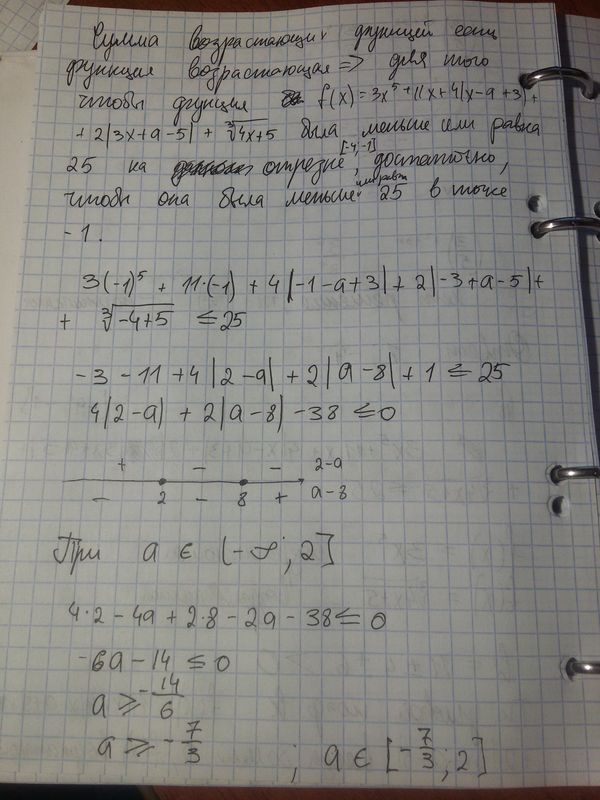 Сумма возрастающих функций есть
функция возрастающая => для того
чтобы функция f(x) = 3x⁵ + 11x + 4|x-a+3| +
+ 2|3x+a-5| + ∛(4x+5) была меньше или равна
25 на отрезке [-4;-1], достаточно,
чтобы она была меньше или равн 25 в точке
-1.
3(-1)⁵ + 11·(-1) + 4|-1-a+3| + 2|-3+a-5| +
+ ∛(-4+5) ≤ 25
-3 - 11 + 4|2-a| + 2|a-8| + 1 ≤ 25
4|2-a| + 2|a-8| - 38 ≤ 0
+ - - 2-a
2 8
- - + a-8
При a ∈ (-∞; 2]
4·2 - 4a + 2·8 - 2a - 38 ≤ 0
-6a - 14 ≤ 0
a ≥ -14/6
a ≥ -7/3 ; a ∈ [-7/3; 2]